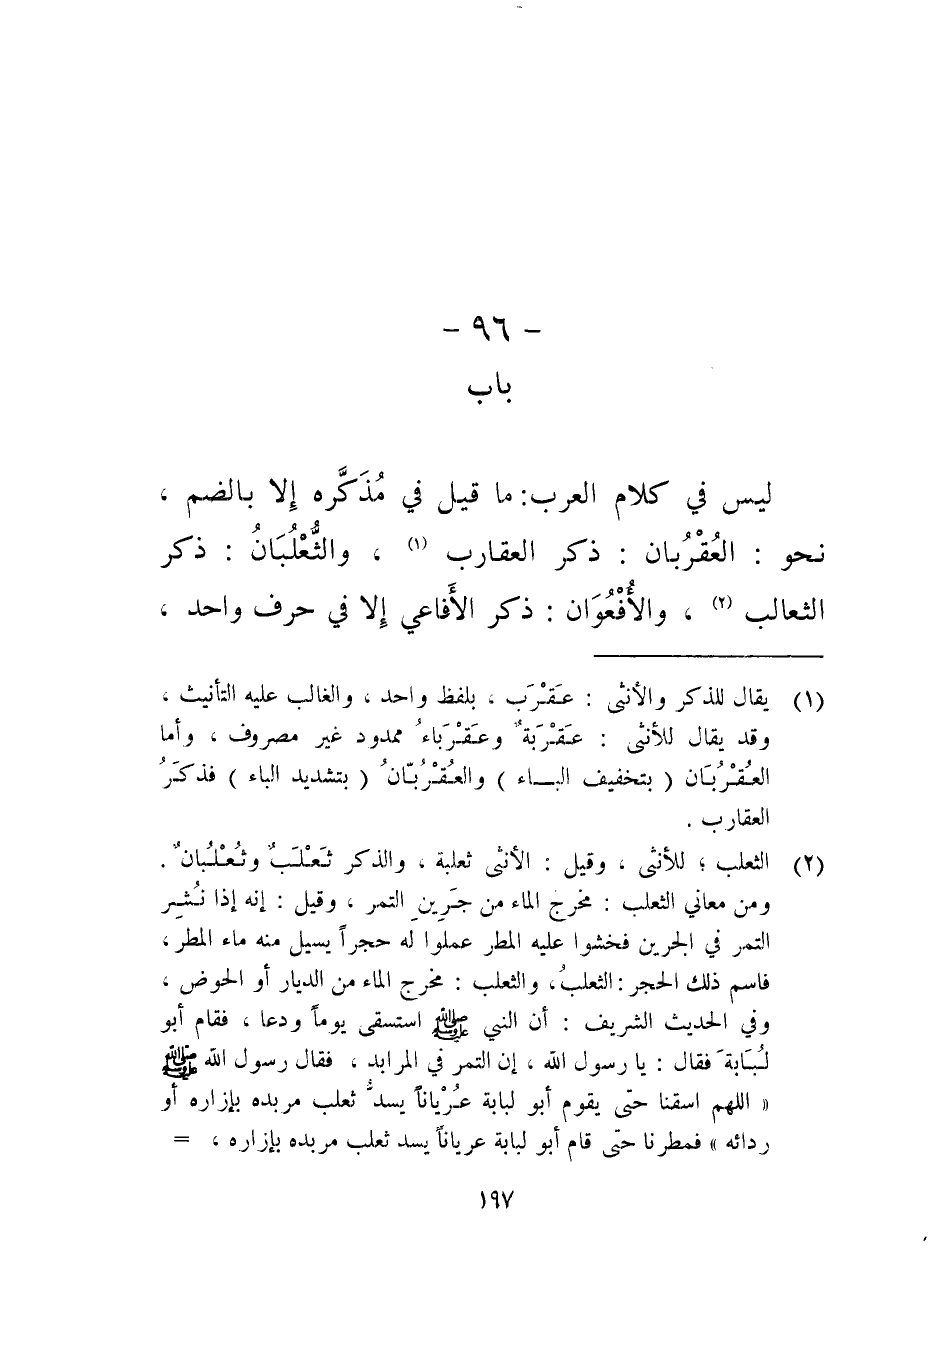 - ٩٦ -
باب
ليس في كلام العرب : ما قيل في مُذَكَّره إلا بالضم ،
نحو : العُقْرُبان : ذكر العقارب (١) ، والثُّعْلُبَانُ : ذكر
الثعالب (٢) ، والأُفْعُوَان : ذكر الأَفاعي إلا في حرف واحد ،
(١) يقال للذكر والأنثى : عَقْرَب ، بلفظ واحد ، والغالب عليه التأنيث ،
وقد يقال للأنثى : عَقْرَبَةٌ وعَقْرَباءُ ممدود غير مصروف ، وأما
العُقْرُبَان ( بتخفيف البـاء ) والعُقْرُبّانُ ( بتشديد الباء ) فذكَرُ
العقارب .
(٢) الثعلب ؛ للأنثى ، وقيل : الأنثى ثعلبة ، والذكر ثَعْلَبٌ وثُعْلُبانٌ .
ومن معاني الثعلب : مخرج الماء من جَرِينِ التمر ، وقيل : إنه إذا نُشِر
التمر في الجرين فخشوا عليه المطر عملوا له حجراً يسيل منه ماء المطر ،
فاسم ذلك الحجر : الثعلبُ ، والثعلب : مخرج الماء من الديار أو الحوض ،
وفي الحديث الشريف : أن النبي ﷺ استسقى يوماً ودعا ، فقام أبو
لُبَابةَ فقال : يا رسول الله ، إن التمر في المرابد ، فقال رسول الله ﷺ
« اللهم اسقنا حتى يقوم أبو لبابة عُرْياناً يسدُّ ثعلب مربده بإزاره أو
ردائه » فمطرنا حتى قام أبو لبابة عرياناً يسد ثعلب مربده بإزاره ، =
١٩٧